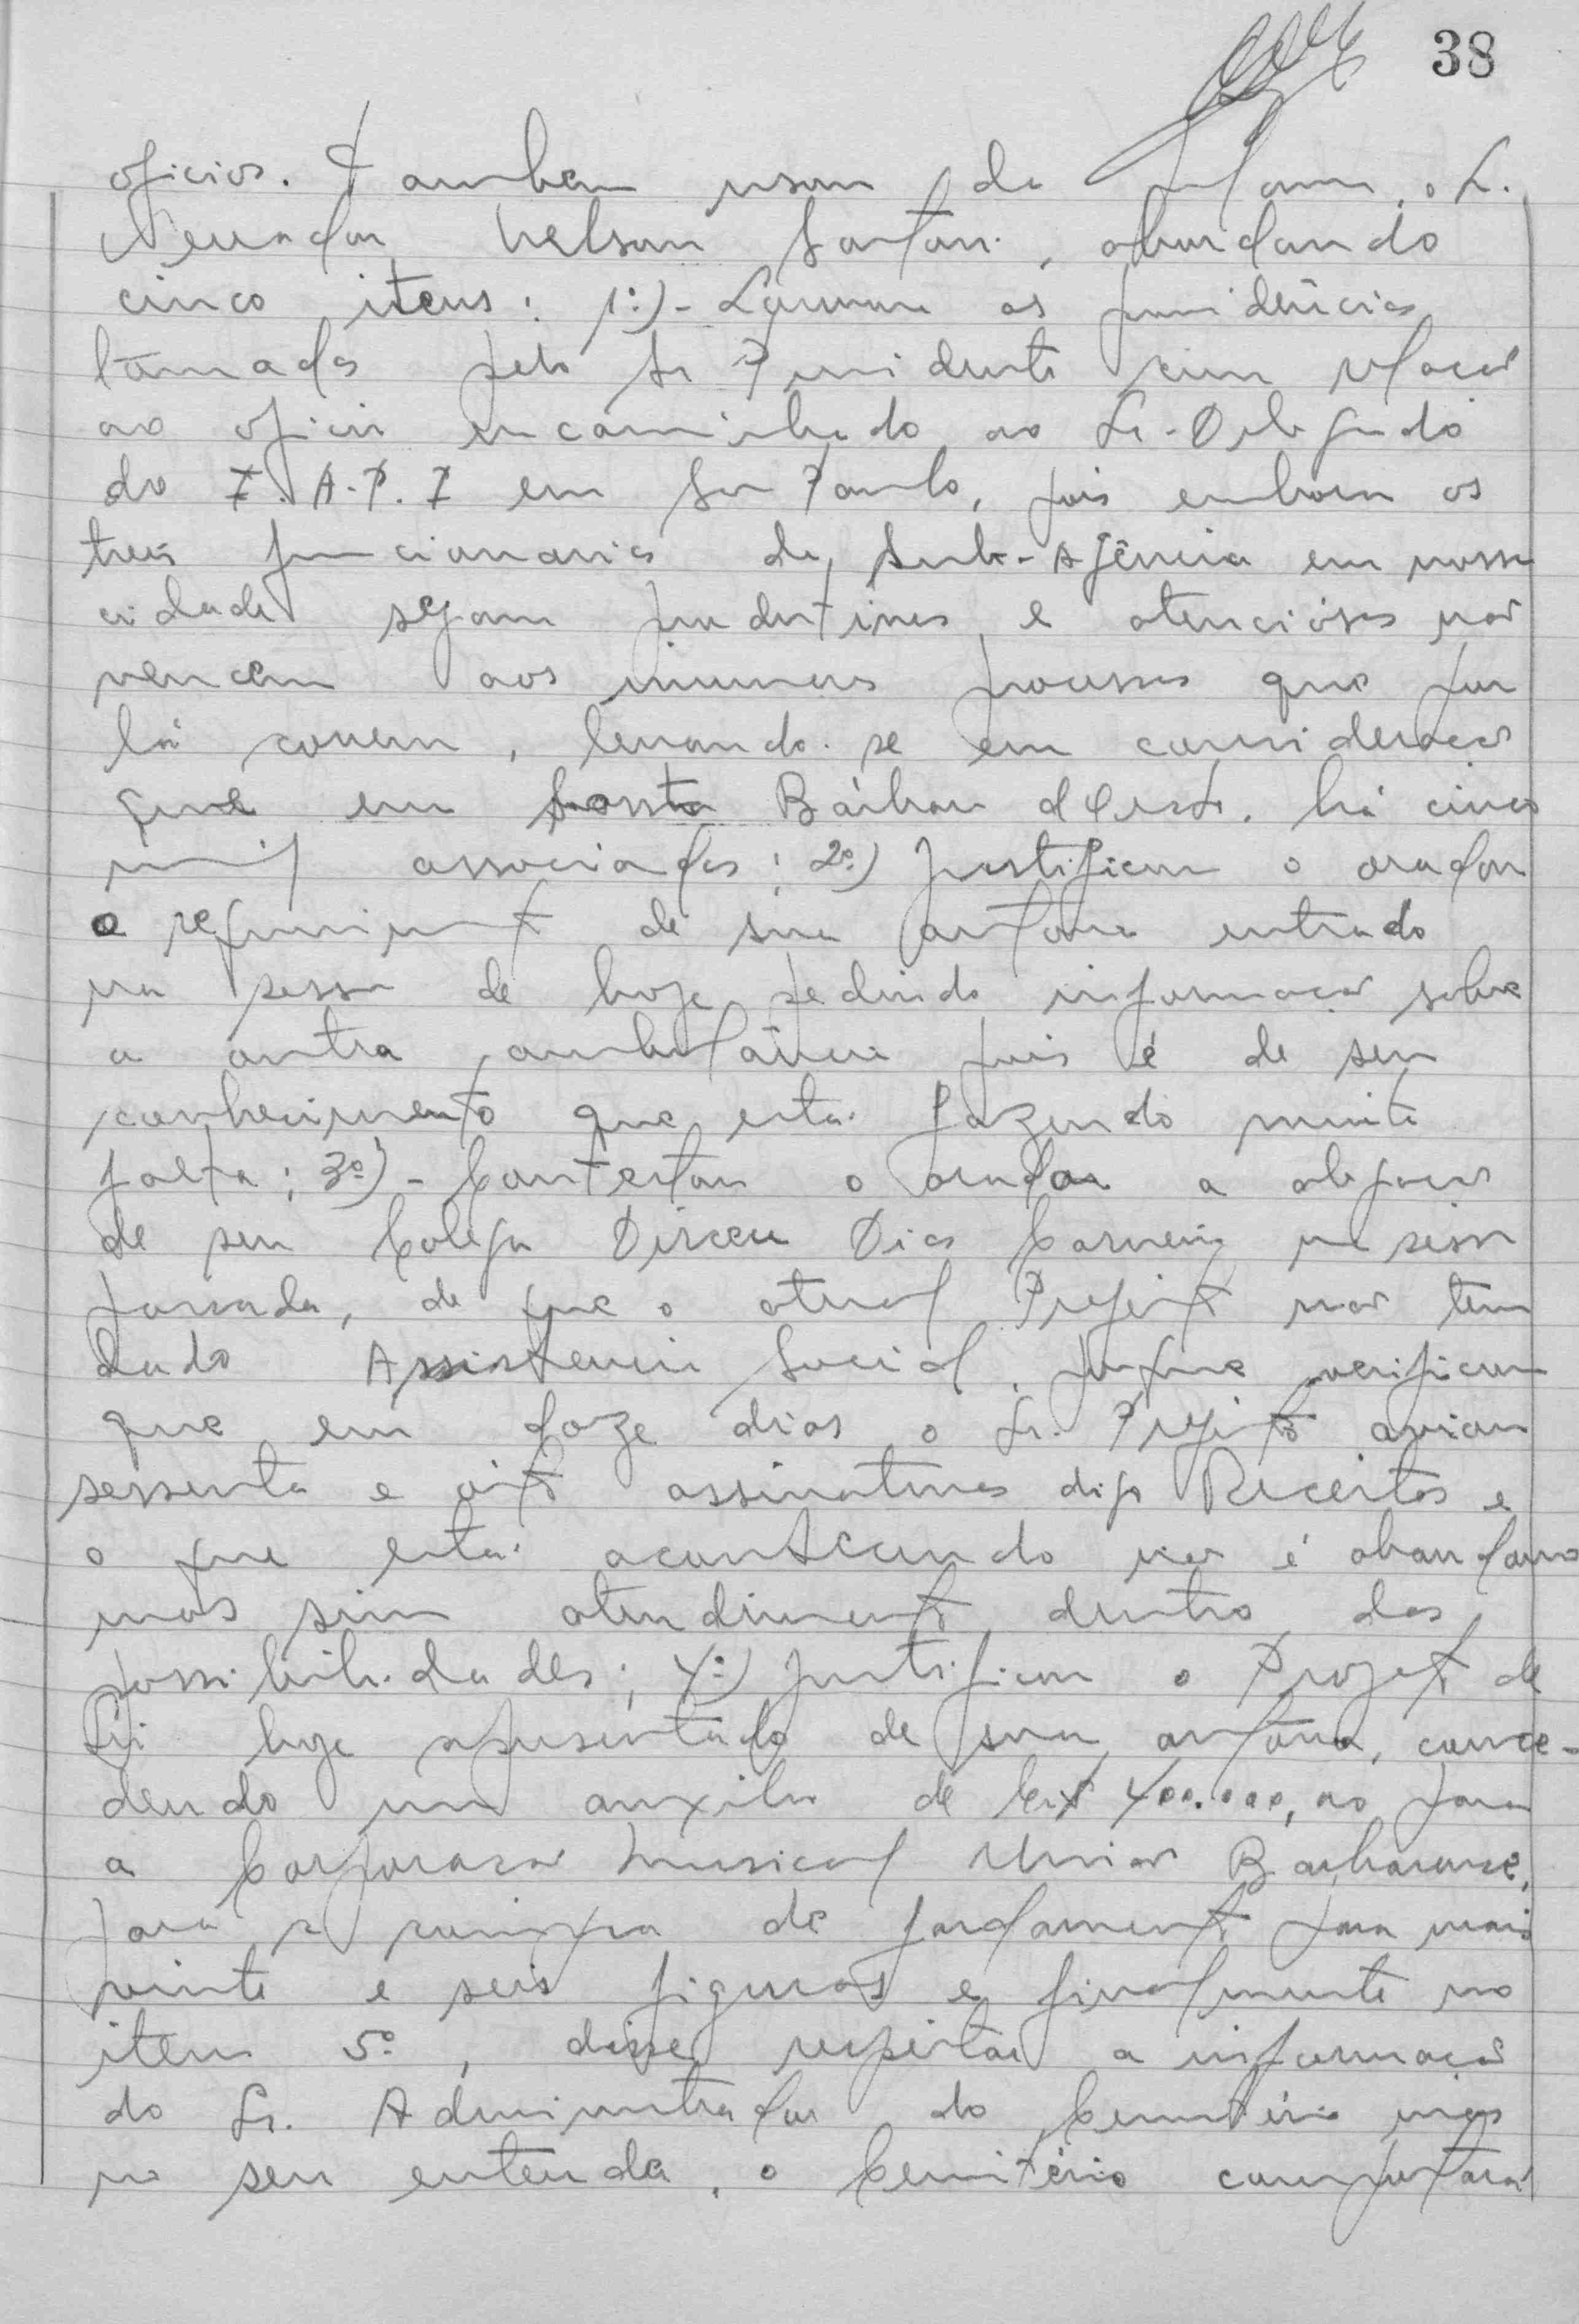 38
oficios. Tambem usou da palavra, o Sr.
Vereador Nelson Sartori, abordando
cinco itens: 1º)- Louvou as providências
tomadas pelo Sr Presidente com relação
ao oficio encaminhado ao Sr. Delegado
do I.A.P.I em São Paulo, pois embora os
tres funcionarios da Sub-Agência em nossa
cidade sejam prestativos e atenciósos não
vencem aos inumeros processos que por
lá correm, levando-se em consideração
que em Santa Bárbara d'Oeste. há cinco
mil associados; 2º) Justificou o orador
o requerimento de sua autoria entrado
na sessão de hoje pedindo informação sobre
a outra ambulância pois é de seu
conhecimento que está fazendo muita
falta; 3º)- Contestou o orador a alegação
de seu Colega Dirceu Dias Carneiro na sessão
passada, de que o atual Prefeito não tem
dado Assistencia Social, porque verificou
que em doze dias o Sr. Prefeito aviou
sessenta e oito assinaturas digo Receitas e
o que está acontecendo não é abandono
mas sim atendimento dentro das
possibilidades; 4º) Justificou o Projeto de
Lei hoje apresentado de sua autoria, conce-
dendo um auxilio de Cr$ 400.000,00 para
a Corporação Musical União Barbarense,
para a compra de fardamento para mais
vinte e seis figuras e finalmente no
item 5º, disse respeitar a informação
do Sr. Administrador do Cemitério mas
no seu entender, o Cemitério comportará